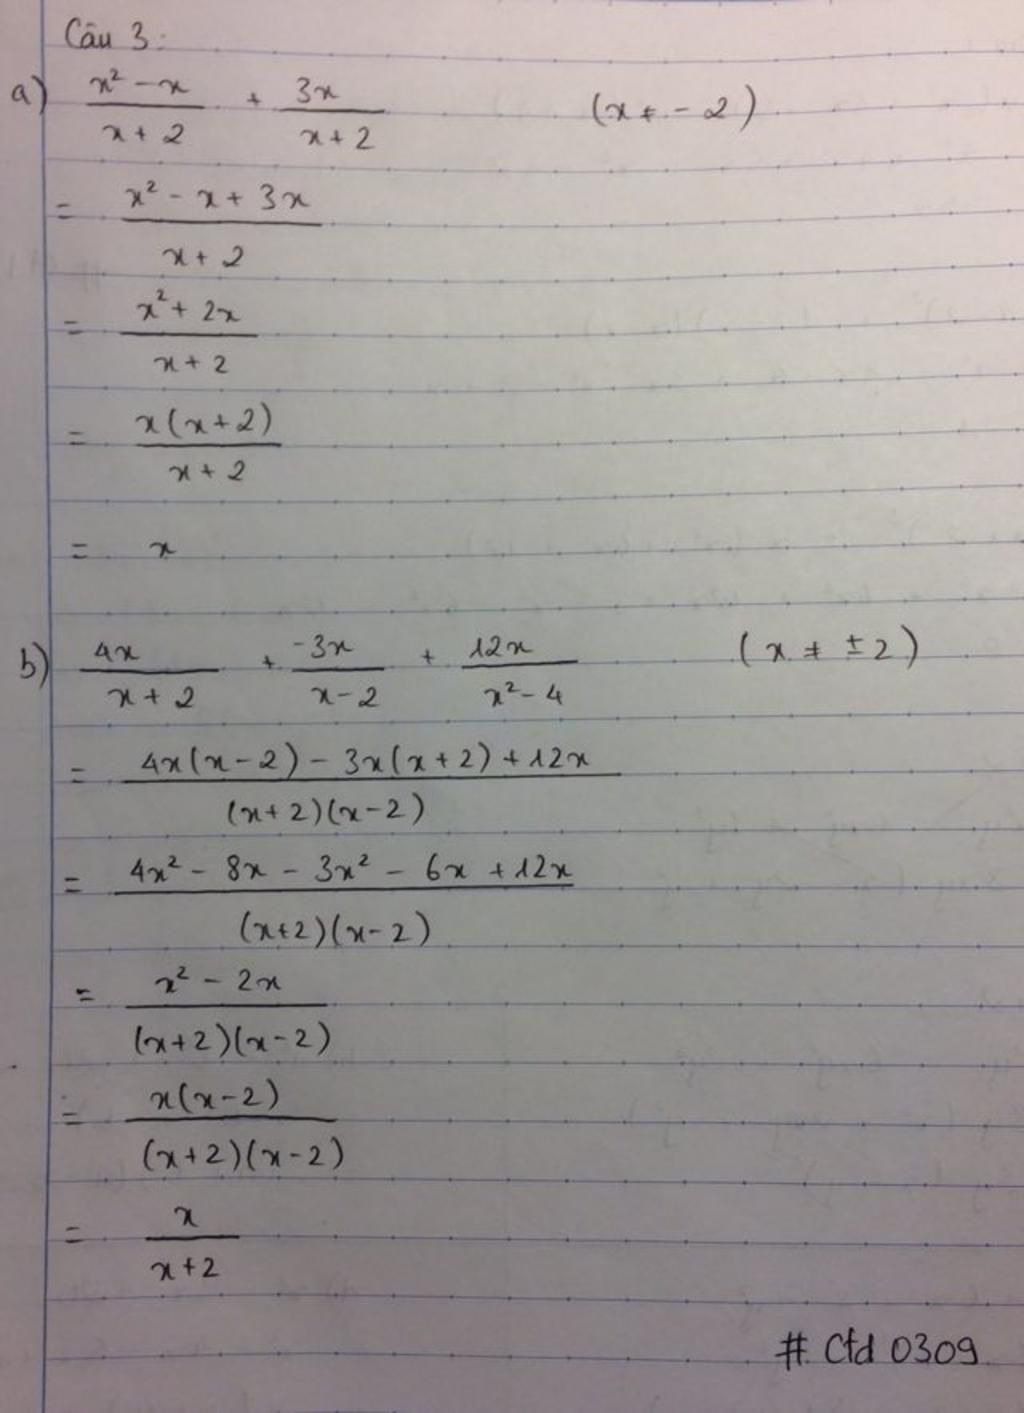 Câu 3:
a) (x² - x)/(x + 2) + 3x/(x + 2) (x ≠ - 2)
= (x² - x + 3x)/(x + 2)
= (x² + 2x)/(x + 2)
= x(x + 2)/(x + 2)
= x
b) 4x/(x + 2) + -3x/(x - 2) + 12x/(x² - 4) (x ≠ ± 2)
= (4x(x - 2) - 3x(x + 2) + 12x)/((x + 2)(x - 2))
= (4x² - 8x - 3x² - 6x + 12x)/((x + 2)(x - 2))
= (x² - 2x)/((x + 2)(x - 2))
= x(x - 2)/((x + 2)(x - 2))
= x/(x + 2)
# Ctd 0309